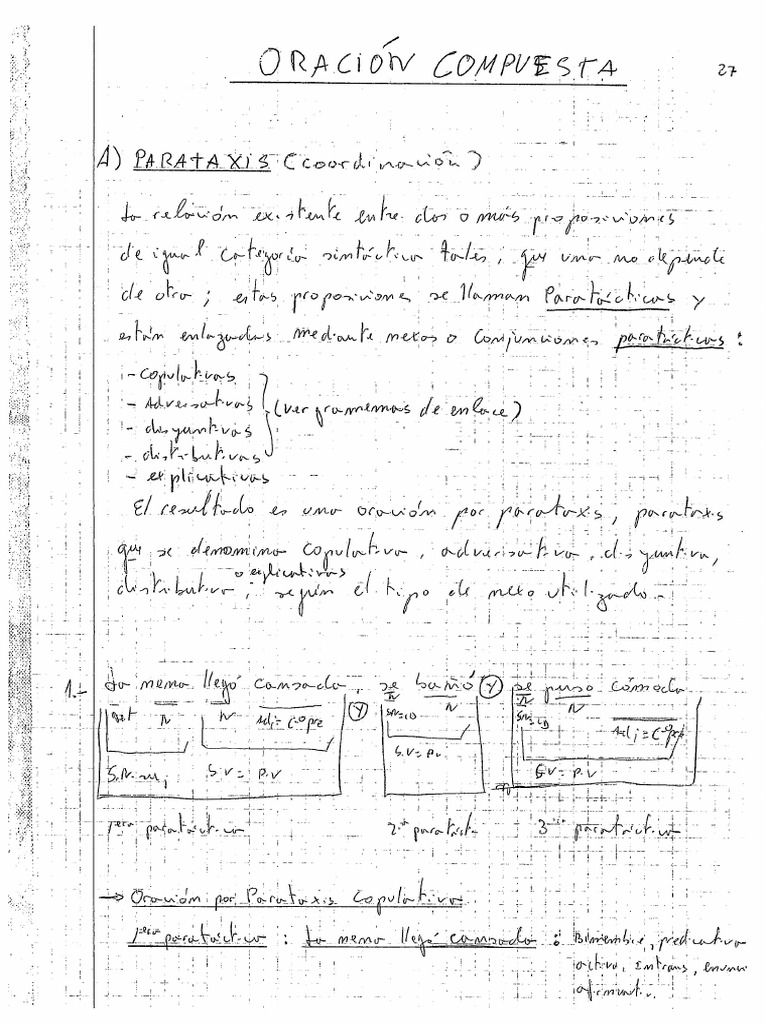 ORACIÓN COMPUESTA
27
A) PARATAXIS (coordinación)
La relación existente entre dos o más proposiciones
de igual categoría sintáctica tales, que una no depende
de otra; estas proposiciones se llaman Paratácticas y
están enlazadas mediante nexos o conjunciones paratácticas:
- copulativas
- Adversativas (ver gramemas de enlace)
- disyuntivas
- distributivas
- explicativas
El resultado es una oración por parataxis, parataxis
que se denomina copulativa, adversativa, disyuntiva,
o explicativas
distributiva, según el tipo de nexo utilizado.-
1.- La nena llegó cansada, se bañó y se puso cómoda
Det N N Adj = C-o pre (y) SN=CD N SN=CD N Adj = C-o pre
S.V = P.V
S.N. S.V = P.V S.V = P.V
1era paratáctica 2ª paratáct. 3era paratáctica
→ Oración por Parataxis Copulativa
1era paratáctica: La nena llegó cansada: Bimembre, predicativa
activa, Intrans, enunci
afirmat..